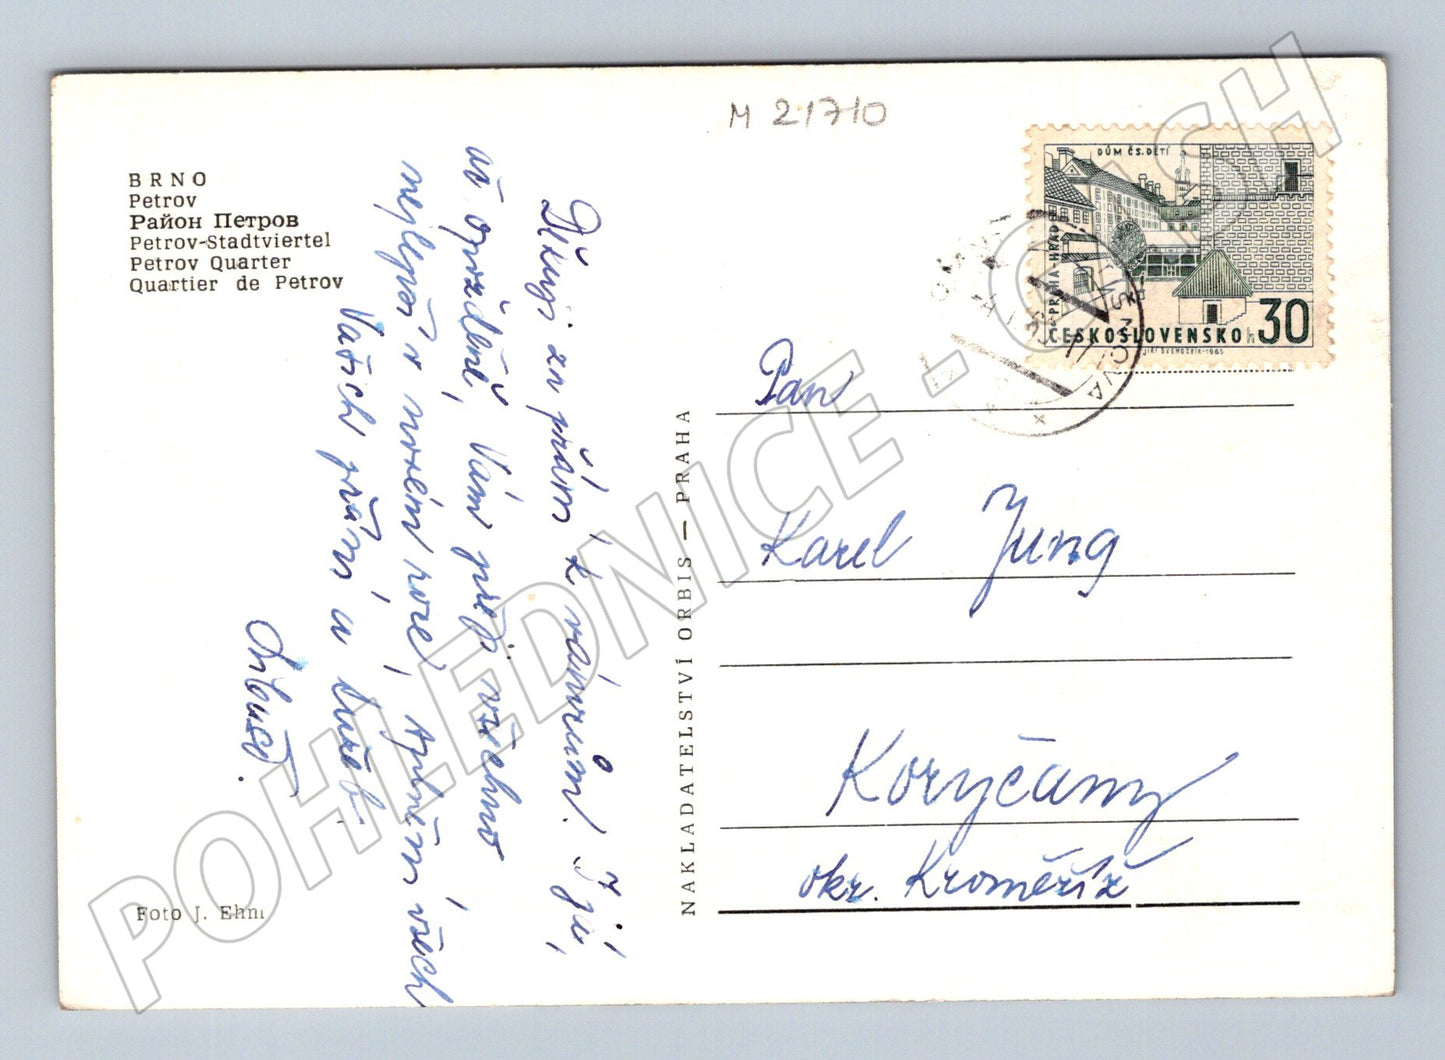 M 21710
BRNO
Petrov
Район Петров
Petrov-Stadtviertel
Petrov Quarter
Quartier de Petrov
Děkuji za přání k vánocům. I já,
ač opožděně, Vám přeji všechno
nejlepší v novém roce, splnění všech
Vašich přání a tužeb.
Foto J. Ehm
NAKLADATELSTVÍ ORBIS — PRAHA
DŮM ČS. DĚTÍ
PRAHA-HRAD
ČESKOSLOVENSKO h 30
JIŘÍ ŠVENGSBÍR-1965
Pan
Karel Jung
Koryčany
okr. Kroměříž
POHLEDNICE - CASH